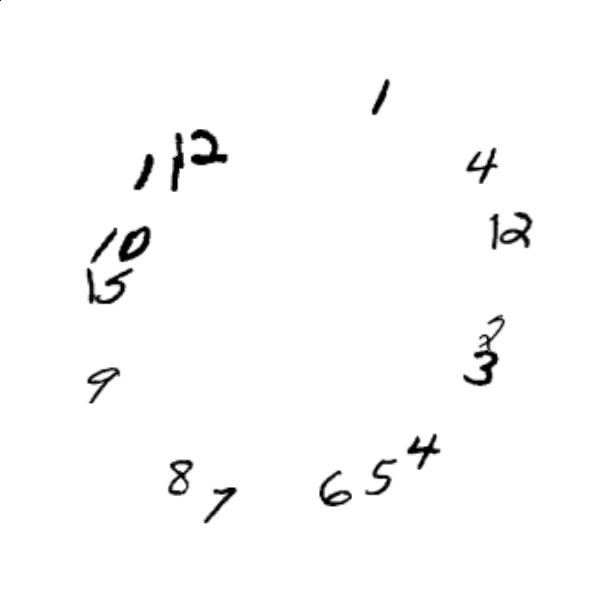 1
4
12
2
3
4
5
6
7
8
9
15
10
11
12